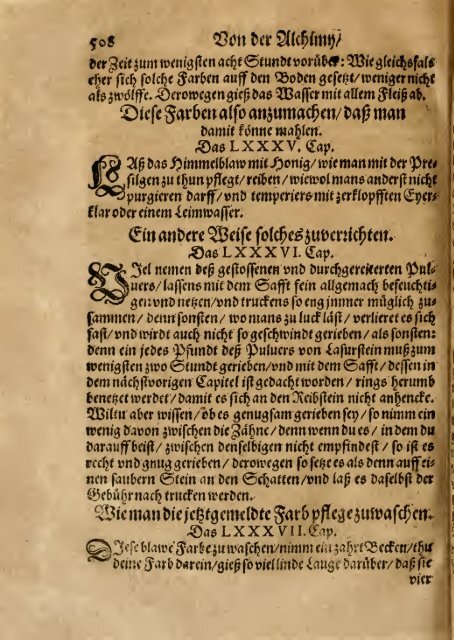 508 Von der Alchimy/
der Zeit zum wenigsten acht Stundt vorüber: Wie gleichsfals
eher sich solche Farben auff den Boden gesetzt/ weniger nicht
als zwölffe. Derowegen gieß das Wasser mit allem Fleiß ab.
Diese Farben also anzumachen/ daß man
damit könne mahlen.
Das LXXXV. Cap.
LAß das Himmelblaw mit Honig/ wie man mit der Pre-
silgen zu thun pflegt/ reiben/ wiewol mans anderst nicht
purgieren darff/ vnd temperiers mit zerklopfften Eyer-
klar oder einem Leimwasser.
Ein andere Weise solches zuverrichten.
Das LXXXVI. Cap.
VIel nemen deß gestossenen vnd durchgereiterten Pul-
uers/ lassens mit dem Safft fein allgemach befeuchti-
gen vnd netzen/ vnd truckens so eng jmmer müglich zu-
sammen/ denn sonsten/ wo mans zu luck läst/ verlieret es sich
fast/ vnd wirdt auch nicht so geschwindt gerieben/ als sonsten:
denn ein jedes Pfundt deß Puluers von Lasurstein muß zum
wenigsten zwo Stundt gerieben/ vnd mit dem Safft/ dessen in
dem nächstvorigen Capitel ist gedacht worden/ rings herumb
benetzet werdet/ damit es sich an den Reibstein nicht anhencke.
Wiltu aber wissen/ ob es genugsam gerieben sey/ so nimm ein
wenig davon zwischen die Zähne/ denn wenn du es/ in dem du
darauff beist/ zwischen denselbigen nicht empfindest/ so ist es
recht vnd gnug gerieben/ derowegen so setze es als denn auff ei-
nen saubern Stein an den Schatten/ vnd laß es daselbst der
Gebühr nach trucken werden.
Wie man die jetztgemeldte Farb pflege zuwaschen.
Das LXXXVII. Cap.
DJese blawe Farbe zu waschen/ nimm ein zahrt Becken/ thu
deine Farb darein/ gieß so viel linde Lauge darüber/ daß sie
vier